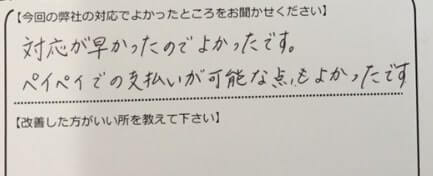 【今回の弊社の対応でよかったところをお聞かせください】
対応が早かったのでよかったです。
ペイペイでの支払いが可能な点もよかったです
【改善した方がいい所を教えて下さい】